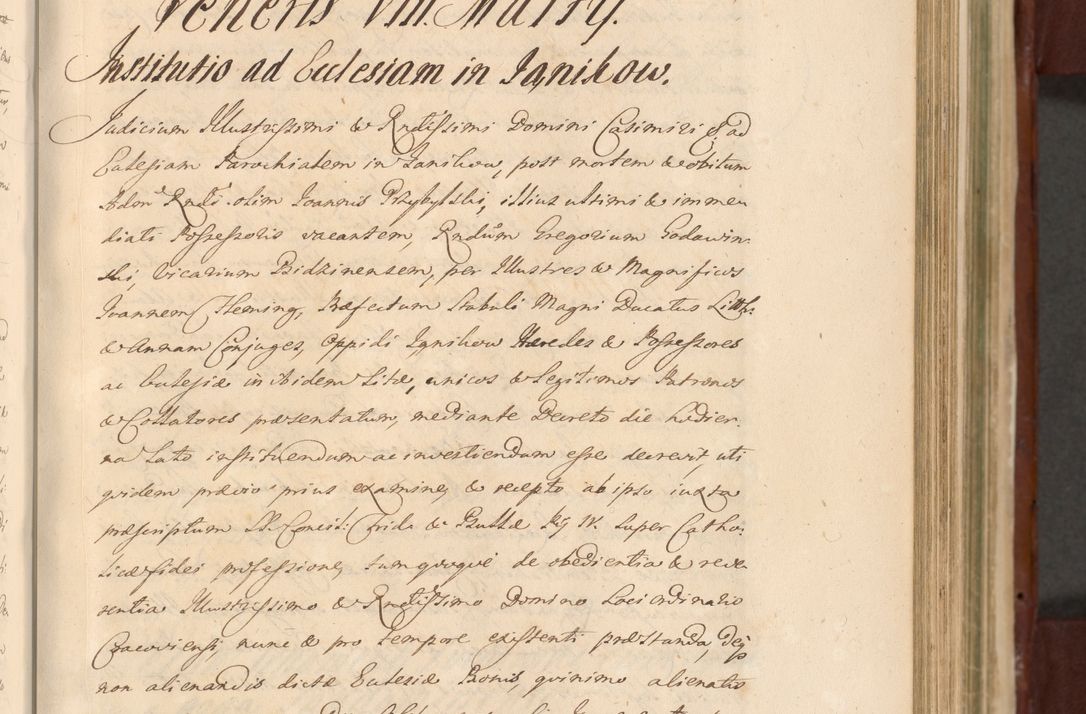 Veneris VIII. Martÿ.
Institutio ad Ecclesiam in Janikow.
Judicium Illustrissimi & Rndissimi Domini Casimiri &c ad
Eccлesiam Parochialem in Janikow, post mortem & obitum
Admd Rndi olim Joannis Przybylski, illius ultimi & imme
diati Possessoris vacantem, Rndum Gregorium Godawin
ski, Vicarium Bidzinensem, per Illustres & Magnificos
Joannem Fleming, Præfectum Stabuli Magni Ducatus Litth:
& Annam Conjuges, Oppidi Janikow Hæredes & Possessores
ac Ecclesiæ inibidem Sitæ, unicos & legitimos Patronos
& Collatores præsentatum, mediante Decreto die hodier
na lato instituendum ac investiendum esse decrevit, uti
quidem prævio prius examine, & recepto ab ipso juxta
præscriptum S. Concil: Trid: & Bullæ Pij IV. super Catho
licæ fidei professione, tum quoque de obedientia & reve
rentia Illustrissimo & Rndissimo Domino Loci Ordinario
Cracoviensi, nunc & pro tempore existenti præstanda, deq
non alienandis dictæ Ecclesiæ Bonis, quinimo alienatis